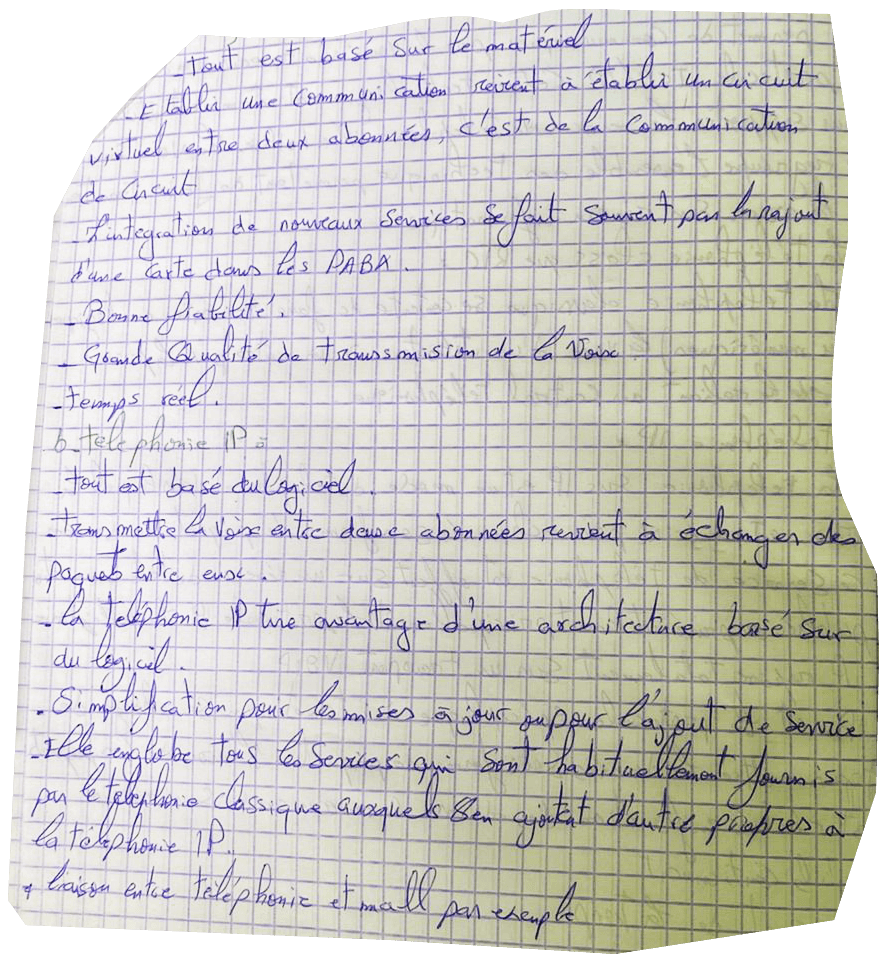 - tout est basé sur le matériel
- Etablir une communication revient à établir un circuit
virtuel entre deux abonnées, c'est de la communication
de circuit
- L'integration de nouveaux services se fait souvent par le rajout
d'une carte dans les PABX.
- Bonne fiabilité.
- Grande Qualité de transsmision de la Voix
- temps réel.
b - téléphonie IP :
- tout est basé du logiciel.
- transmettre la voix entre deux abonnées revient à échanger des
paquets entre eux.
- la telephonie IP tire avantage d'une architecture basé sur
du logiciel.
- Simplification pour les mises à jour ou pour l'ajout de service
- Elle englobe tous les services qui sont habituellement fournis
par le telephonie classique auxquels s'en ajoutent d'autre propres à
la téléphonie IP.
+ liaison entre téléphonie et mall par exemple